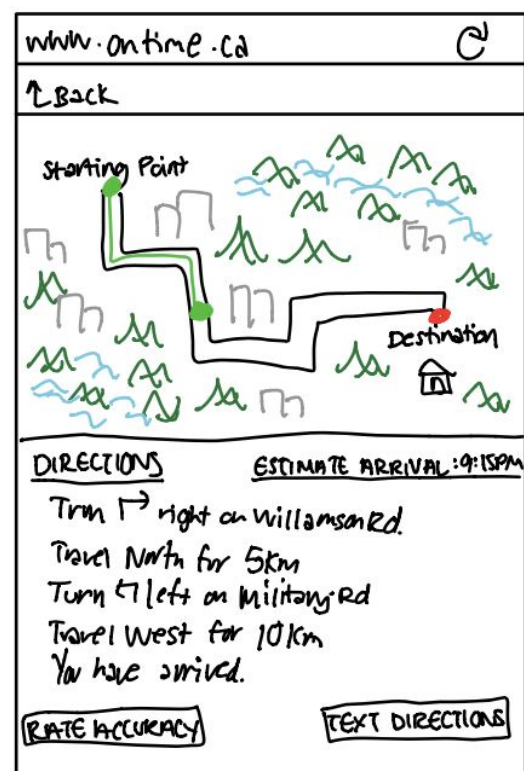 www.ontime.ca
Back
Starting Point
Destination
DIRECTIONS
ESTIMATE ARRIVAL: 9:15PM
Turn right on Willamson Rd.
Travel North for 5km
Turn left on Military Rd
Travel West for 10km
You have arrived.
RATE ACCURACY
TEXT DIRECTIONS